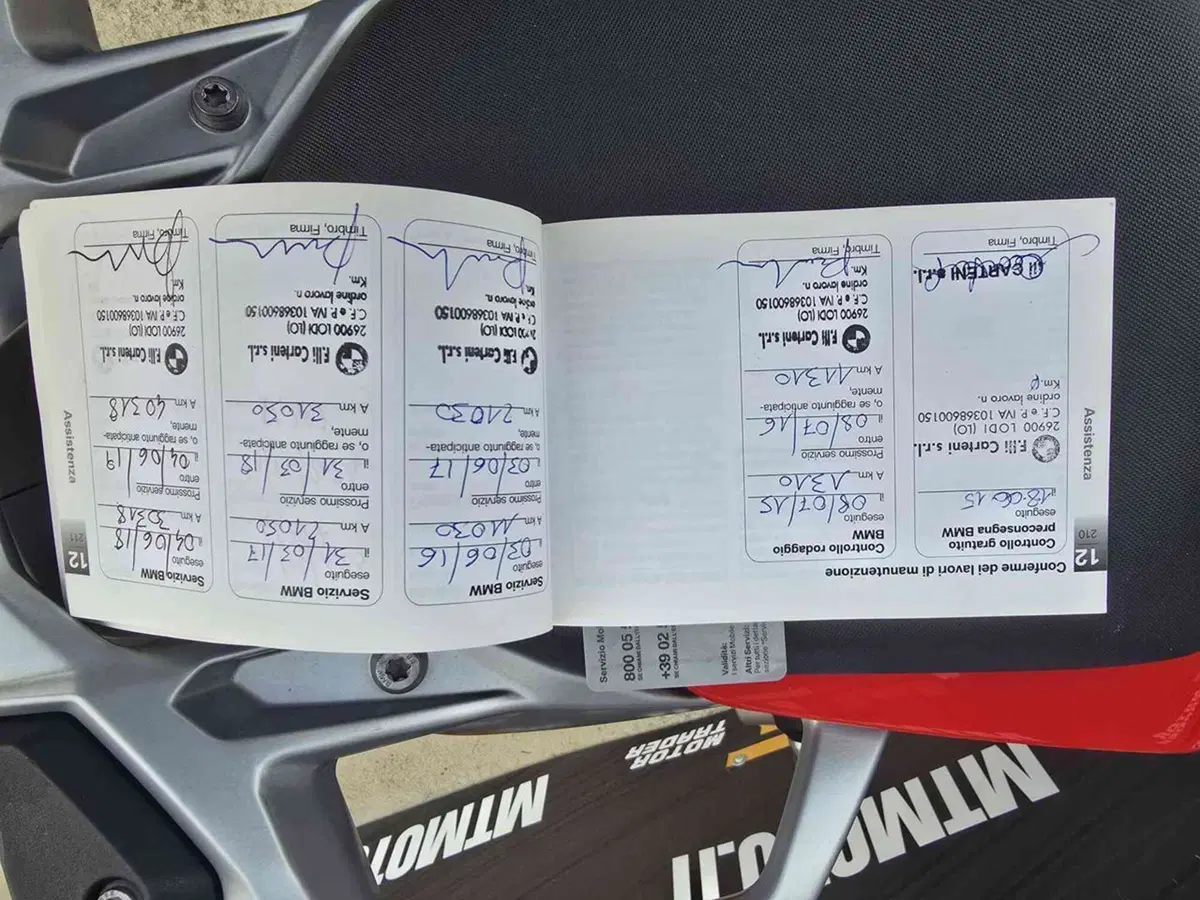 12
210
Assistenza
Conferme dei lavori di manutenzione
Controllo gratuito
preconsegna BMW
eseguito
il 18-06-15
F.lli Carteni s.r.l.
26900 LODI (LO)
C.F. e P. IVA 10368600150
ordine lavoro n.
Km.
CARTENI s.r.l.
Timbro, Firma
Controllo rodaggio
BMW
eseguito
il 08/07/15
A km 1310
Prossimo servizio
entro
il 08/07/16
o, se raggiunto anticipata-
mente,
A km 11310
F.lli Carteni s.r.l.
26900 LODI (LO)
C.F. e P. IVA 10368600150
ordine lavoro n.
Km.
Timbro, Firma
12
211
Assistenza
Servizio BMW
eseguito
il 03/06/16
A km 11030
Prossimo servizio
entro
il 03/06/17
o, se raggiunto anticipata-
mente,
A km 21030
F.lli Carteni s.r.l.
26900 LODI (LO)
C.F. e P. IVA 10368600150
ordine lavoro n.
Km.
Timbro, Firma
Servizio BMW
eseguito
il 31/03/17
A km 21050
Prossimo servizio
entro
il 31/03/18
o, se raggiunto anticipata-
mente,
A km 31050
F.lli Carteni s.r.l.
26900 LODI (LO)
C.F. e P. IVA 10368600150
ordine lavoro n.
Km.
Timbro, Firma
Servizio BMW
eseguito
il 04/06/18
A km 30318
Prossimo servizio
entro
il 04/06/19
o, se raggiunto anticipata-
mente,
A km 40318
F.lli Carteni s.r.l.
26900 LODI (LO)
C.F. e P. IVA 10368600150
ordine lavoro n.
Km.
Timbro, Firma
Servizio Mo
800 05
+39 02
Validità:
I servizi Mobile
Altri Servizi:
Per tutti i detta
sezione "Servi
MOTOR
TRADER
MTMOT
MTMO
O.IT